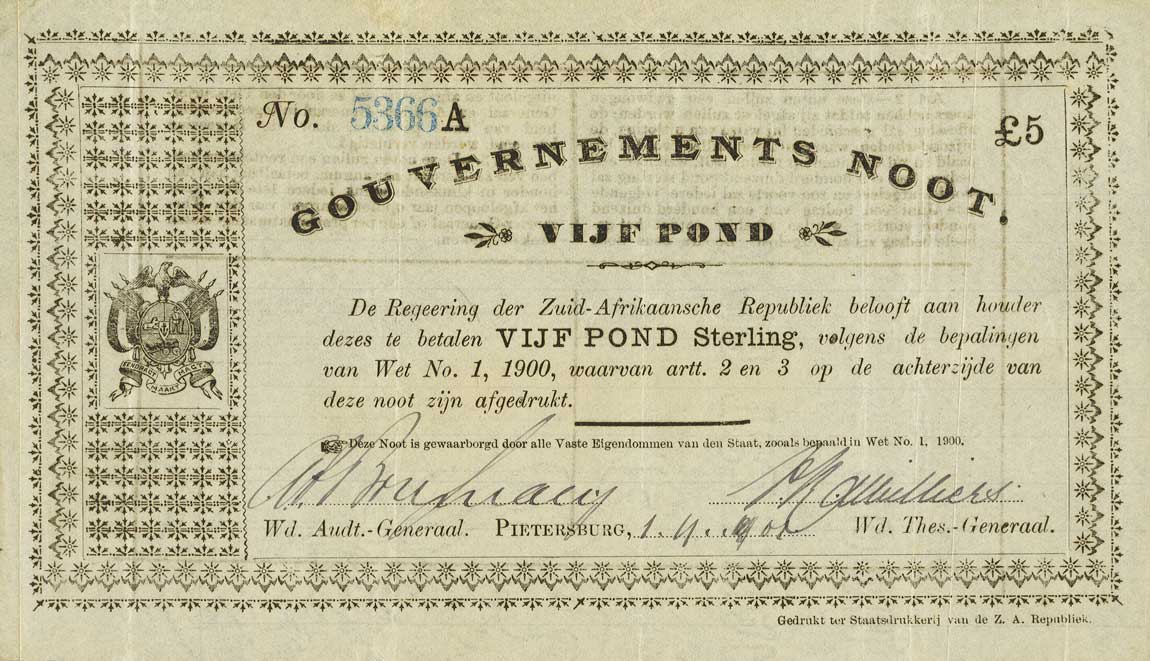 No. 5366 A
£5
GOUVERNEMENTS NOOT.
VIJF POND
De Regeering der Zuid-Afrikaansche Republiek belooft aan houder
dezes te betalen VIJF POND Sterling, volgens de bepalingen
van Wet No. 1, 1900, waarvan artt. 2 en 3 op de achterzijde van
deze noot zijn afgedrukt.
EENDRAGT MAAKT MAGT
Deze Noot is gewaarborgd door alle Vaste Eigendommen van den Staat, zooals bepaald in Wet No. 1, 1900.
Wd. Audt.-Generaal. PIETERSBURG, Wd. Thes.-Generaal.
Gedrukt ter Staatsdrukkerij van de Z. A. Republiek.